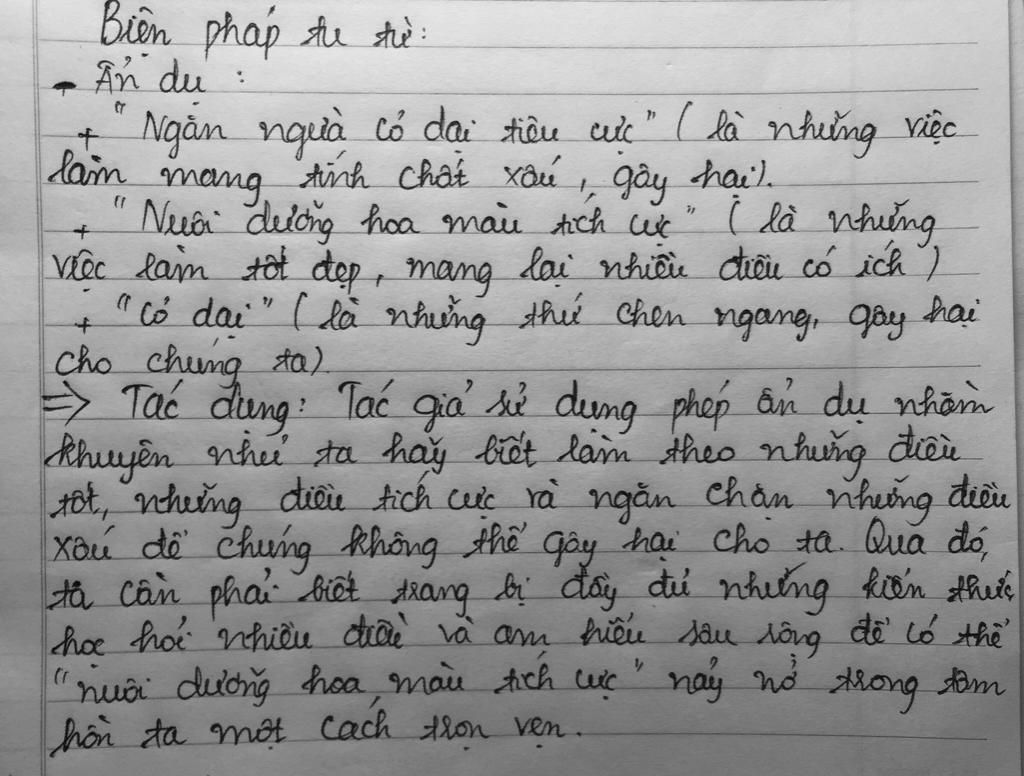 Biện pháp tu từ:
- Ẩn dụ :
+ "Ngăn ngừa cỏ dại tiêu cực" ( là những việc
làm mang tính chất xấu, gây hại).
+ "Nuôi dưỡng hoa màu tích cực" ( là những
việc làm tốt đẹp, mang lại nhiều điều có ích )
+ "Cỏ dại" ( là những thứ chen ngang, gây hại
cho chúng ta)
=> Tác dụng: Tác giả sử dụng phép ẩn dụ nhằm
khuyên nhủ ta hãy biết làm theo những điều
tốt, những điều tích cực và ngăn chặn những điều
xấu để chúng không thể gây hại cho ta. Qua đó,
ta cần phải biết trang bị đầy đủ những kiến thức,
học hỏi nhiều điều và am hiểu sâu rộng để có thể
"nuôi dưỡng hoa màu tích cực" nảy nở trong tâm
hồn ta một cách trọn vẹn.